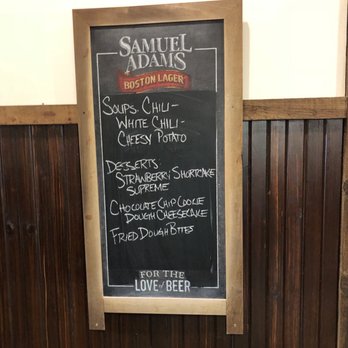 SAMUEL
ADAMS
BOSTON LAGER
SOUPS: CHILI -
WHITE CHILI -
CHEESY POTATO
DESSERTS:
STRAWBERRY SHORTCAKE
SUPREME
CHOCOLATE CHIP COOKIE
DOUGH CHEESECAKE
FRIED DOUGH BITES
FOR THE
LOVE of BEER